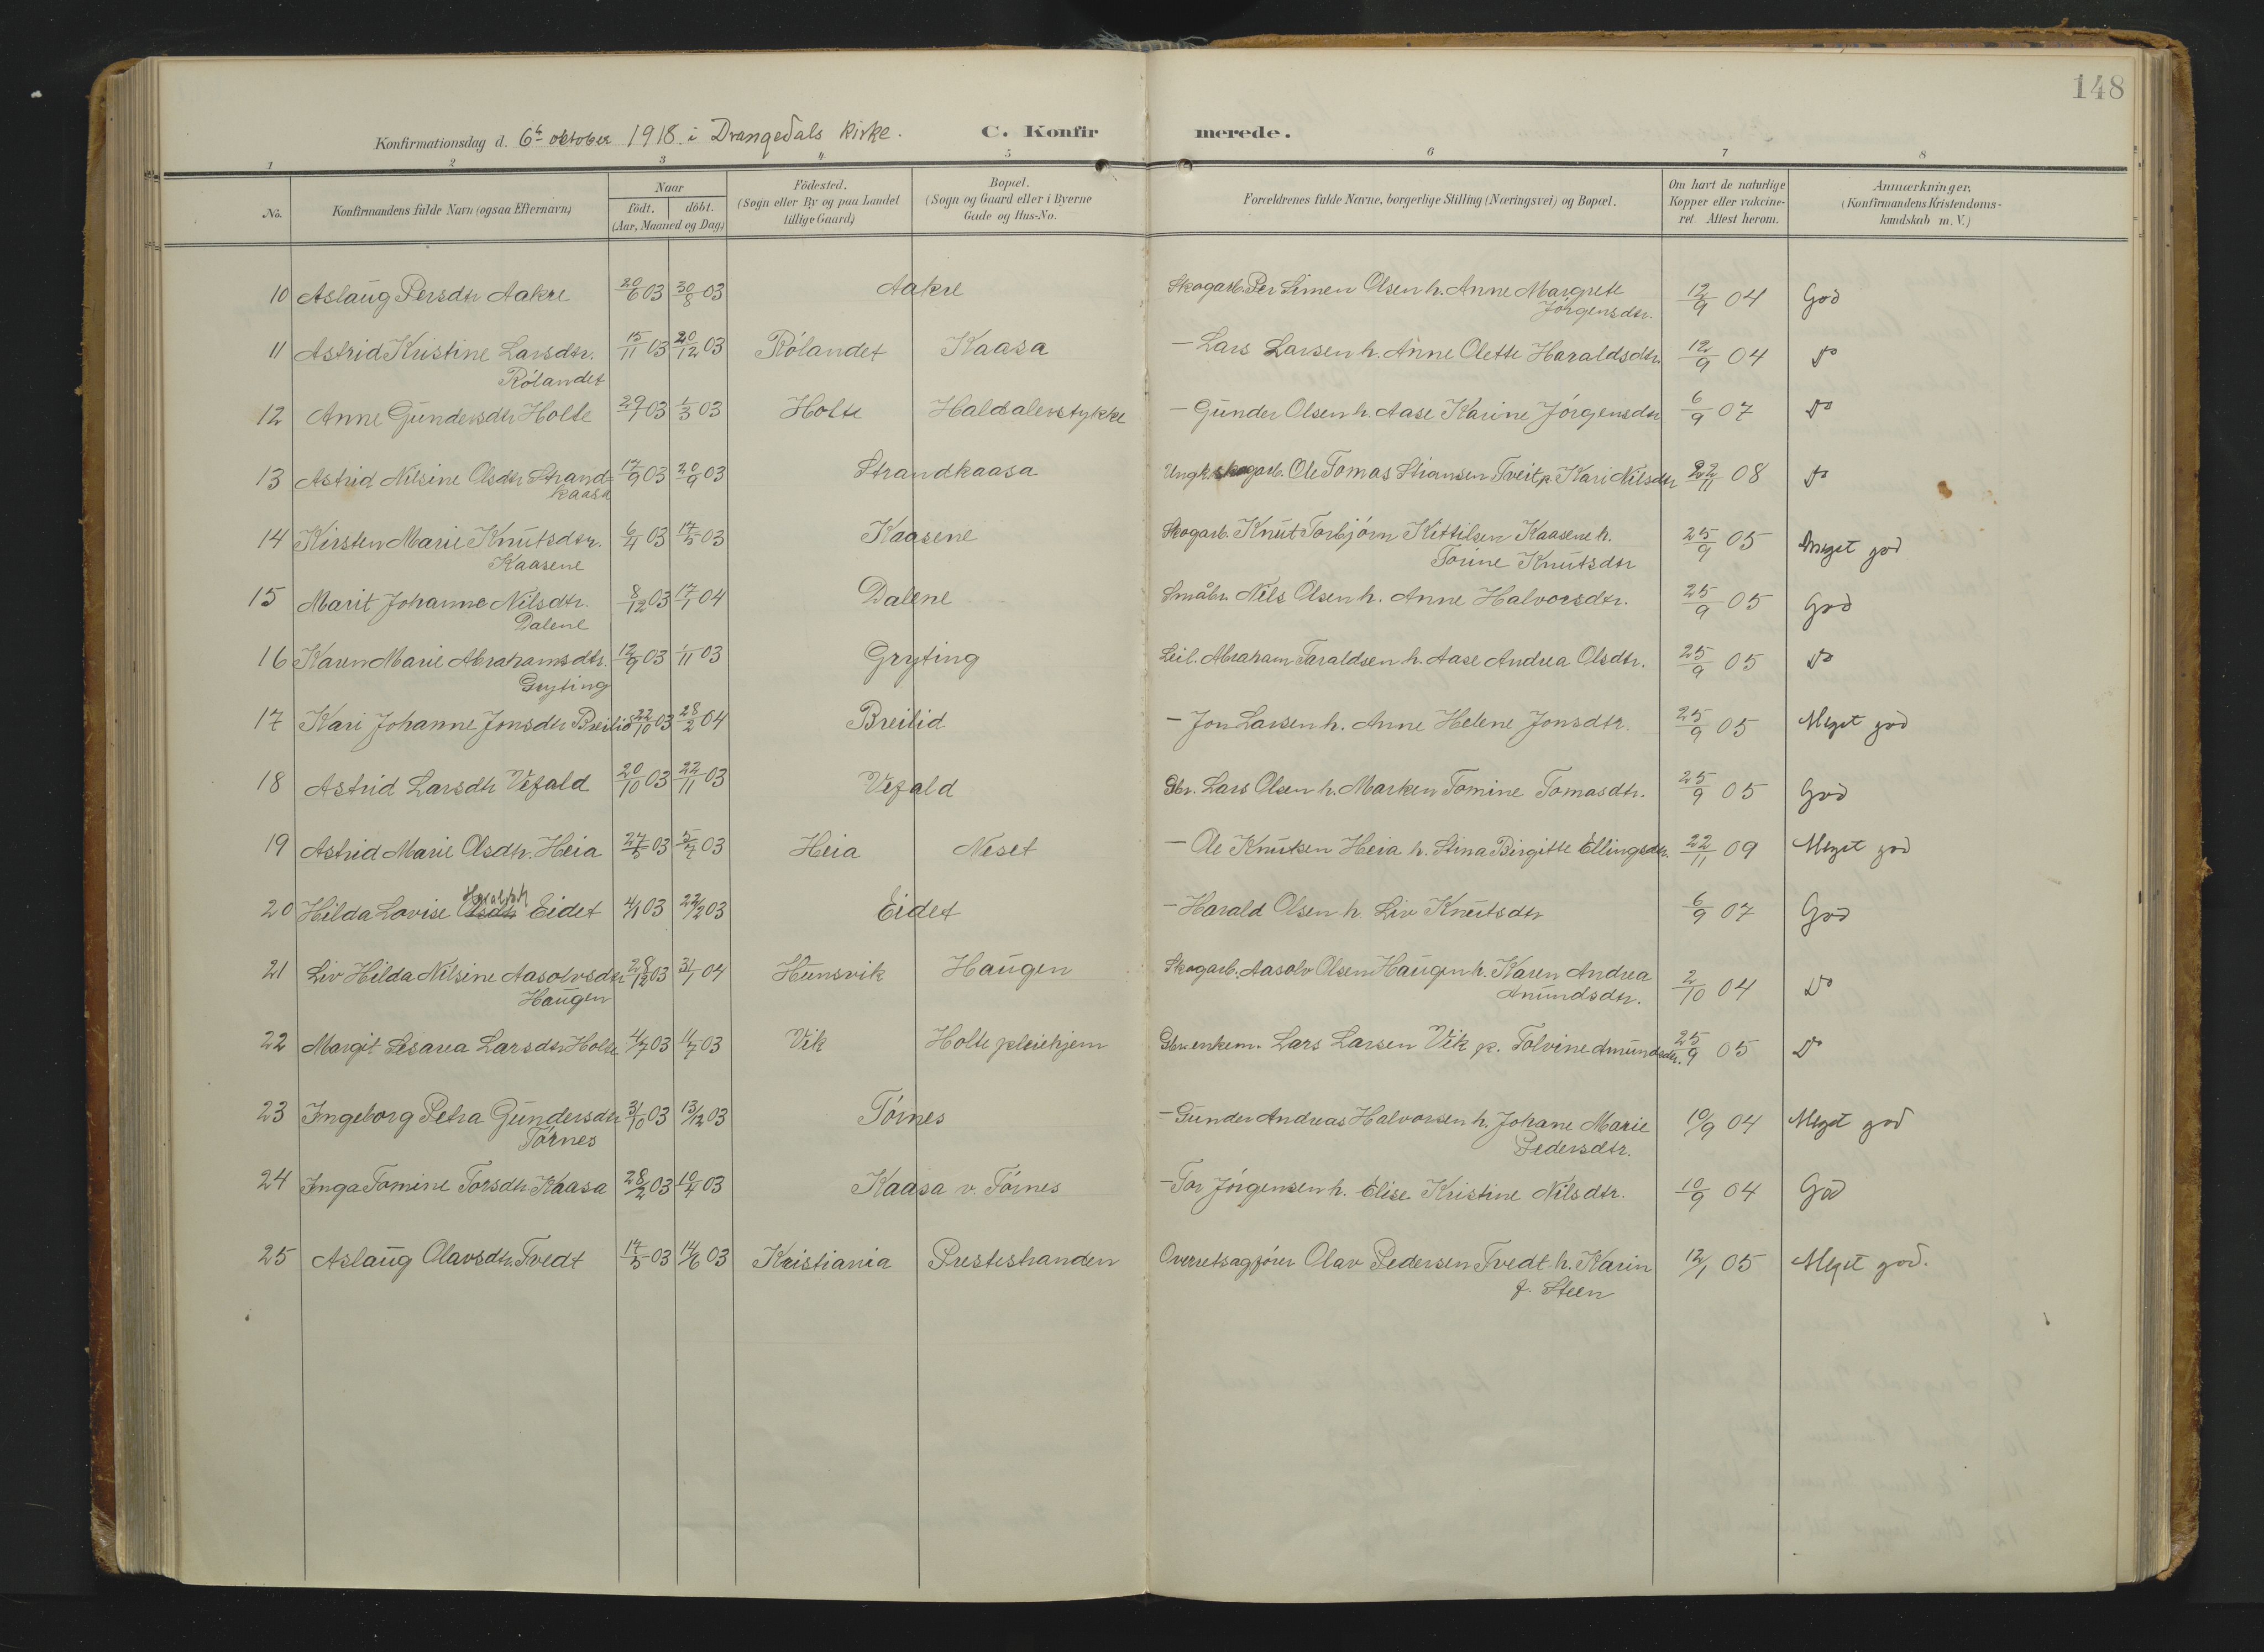 148
Konfirmationsdag d. 6te oktober 1918 i Drangedals kirke. C. Konfirmerede.
1 2 3 4 5 6 7 8
No. Konfirmandens fulde Navn (ogsaa Efternavn) Naar födt. döbt. (Aar, Maaned og Dag) Födested. (Sogn eller By og paa Landet tillige Gaard) Bopæl. (Sogn og Gaard eller i Byerne Gade og Hus-No. Forældrenes fulde Navne, borgerlige Stilling (Næringsvei) og Bopæl. Om havt de naturlige Kopper eller vakcineret. Attest herom. Anmærkninger. (Konfirmandens Kristendomskundskab m. V.)
10 Aslaug Persdtr Aakre 20/6 03 30/8 03 Aakre Skogarb. Per Simen Olsen h. Anne Margrete 12/9 04 God
Jørgensdtr.
11 Astrid Kristine Larsdtr. 15/11 03 20/12 03 Rølandet Kaasa - Lars Larsen h. Anne Olette Haraldsdtr. 12/9 04 Do
Rølandet
12 Anne Gundersdtr Holte 29/1 03 1/3 03 Holte Haldalenstykke - Gunder Olsen h. Aase Karine Jørgensdtr 6/9 07 Do
13 Astrid Nilsine Olsdtr Strand= 17/9 03 20/9 03 Strandkaasa Ungk. skogarb. Ole Tomas Stiansen Tveit p. Kari Nilsdtr 22/11 08 Do
kaasa
14 Kirsten Marie Knutsdtr. 6/4 03 17/5 03 Kaasene Skogarb. Knut Torbjørn Kittilsen Kaasene h. 25/9 05 Meget god
Kaasene Torine Knutsdtr
15 Marit Johanne Nilsdtr. 8/12 03 17/1 04 Dalene Småbr. Nils Olsen h. Anne Halvorsdtr. 25/9 05 God
Dalene
16 Karen Marie Abrahamsdtr. 12/9 03 1/11 03 Gryting Leil. Abraham Taraldsen h. Aase Andrea Olsdtr. 25/9 05 Do
Gryting
17 Kari Johanne Jonsdtr Breilid 22/10 03 28/2 04 Breilid - Jon Larsen h. Anne Helene Jonsdtr. 25/9 05 Meget god
18 Astrid Larsdtr Vefald 20/10 03 22/11 03 Vefald Gbr. Lars Olsen h. Marken Tomine Tomasdtr. 25/9 05 God
19 Astrid Marie Olsdtr. Heia 27/5 03 5/7 03 Heia Neset - Ole Knutsen Heia h. Stina Birgitte Ellingsdtr. 22/11 09 Meget god
Haraldsdtr
20 Hilda Lovise Olsdtr Eidet 4/1 03 22/2 03 Eidet - Harald Olsen h. Liv Knutsdtr 6/9 07 God
21 Liv Hilda Nilsine Aasolvsdtr 28/12 03 31/1 04 Hunsvik Haugen Skogarb. Aasolv Olsen Haugen h. Karen Andrea 2/10 04 Do
Haugen Anundsdtr.
22 Margit Lisarea Larsdtr Holte 4/7 03 11/7 03 Vik Holte pleiehjem Gbr. enkem. Lars Larsen Vik p. Tolvine Amundsdtr. 25/9 05 Do
23 Ingeborg Petra Gundersdtr 31/10 03 13/12 03 Tørnes - Gunder Andreas Halvorsen h. Johane Marie 10/9 04 Meget god
Tørnes Pedersdtr.
24 Inga Tomine Torsdtr. Kaasa 28/2 03 10/4 03 Kaasa v. Tørnes - Tor Jørgensen h. Elise Kristine Nilsdtr. 10/9 04 God
25 Aslaug Olavsdtr. Tvedt 17/5 03 14/6 03 Kristiania Prestestranden Overretsagfører Olav Pedersen Tvedt h. Karin 12/1 05 Meget god.
f. Steen